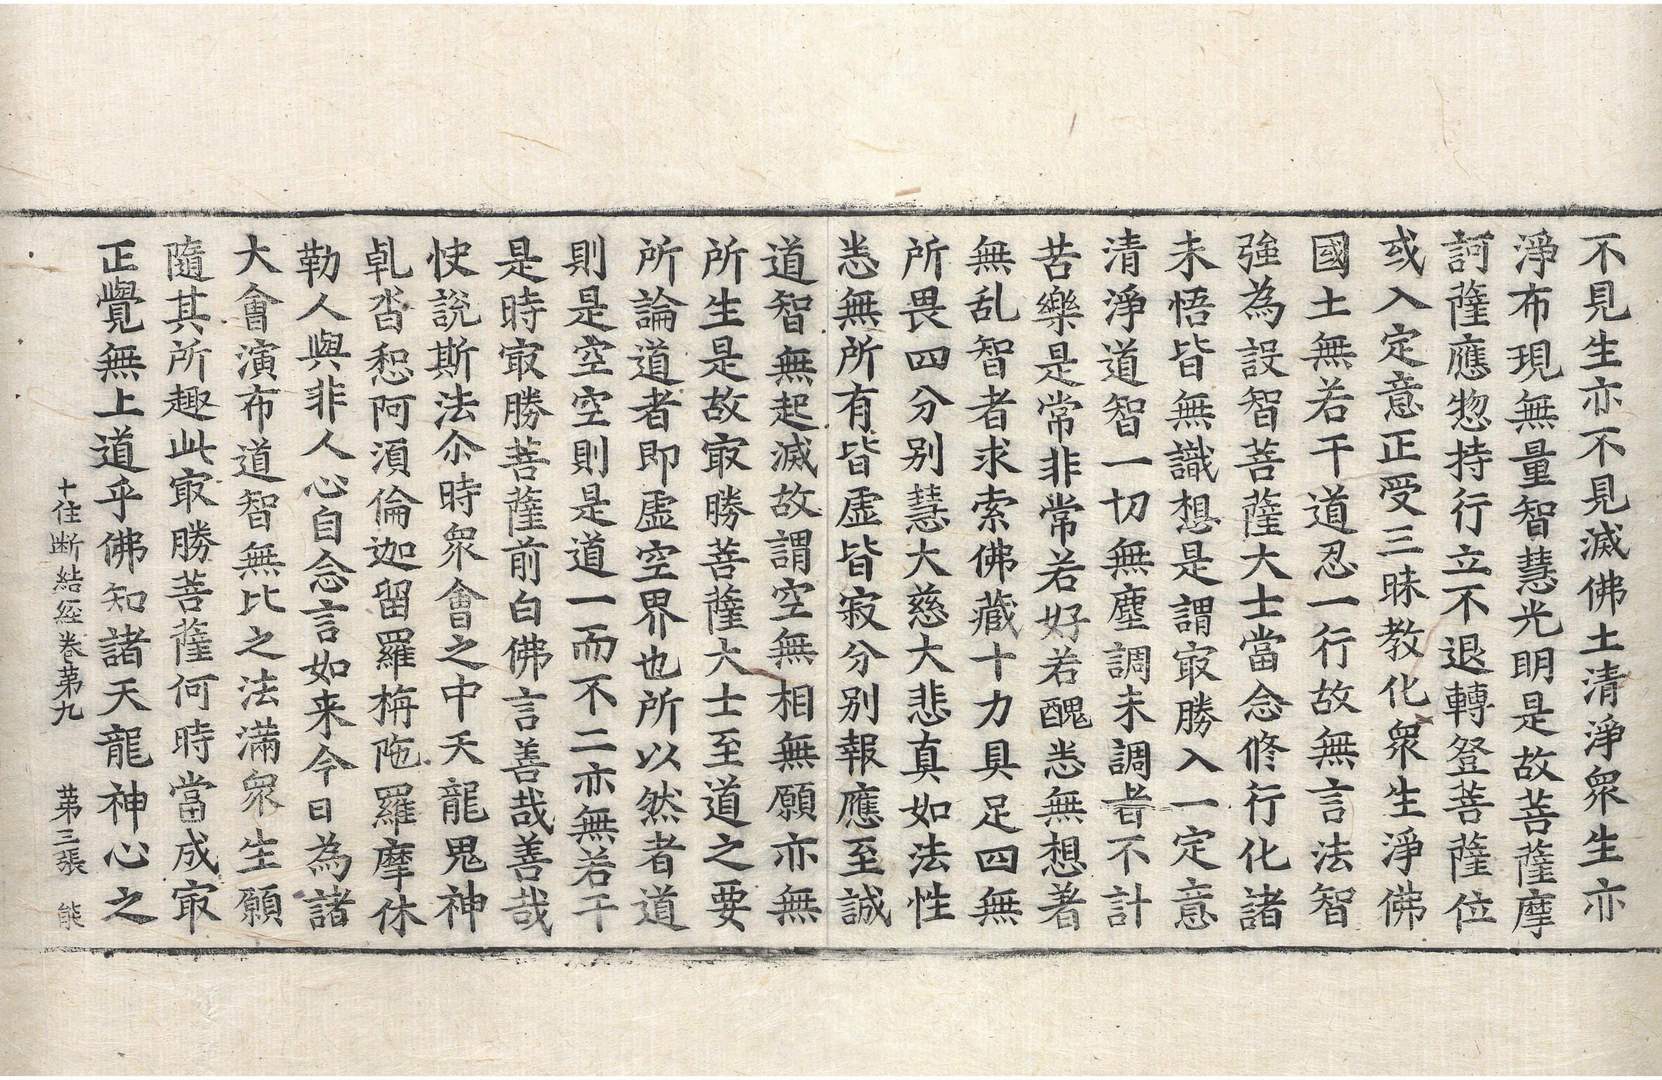 不見生亦不見滅佛土清淨衆生亦
淨布現無量智慧光明是故菩薩摩
訶薩應惣持行立不退轉登菩薩位
或入定意正受三昧教化衆生淨佛
國土無若干道忍一行故無言法智
強為設智菩薩大士當念修行化諸
未悟皆無識想是謂㝡勝入一定意
清淨道智一切無塵調未調者不計
苦樂是常非常若好若醜悉無想著
無乱智者求索佛藏十力具足四無
所畏四分别慧大慈大悲真如法性
悉無所有皆虛皆寂分别報應至誠
道智無起滅故謂空無相無願亦無
所生是故㝡勝菩薩大士至道之要
所論道者即虛空界也所以然者道
則是空空則是道一而不二亦無若干
是時㝡勝菩薩前白佛言善哉善哉
快說斯法尒時衆會之中天龍鬼神
乹沓惒阿須倫迦留羅栴陁羅摩休
勒人與非人心自念言如来今日為諸
大會演布道智無比之法滿衆生願
隨其所趣此㝡勝菩薩何時當成㝡
正覺無上道乎佛知諸天龍神心之
十住断結経卷第九 第三張 能